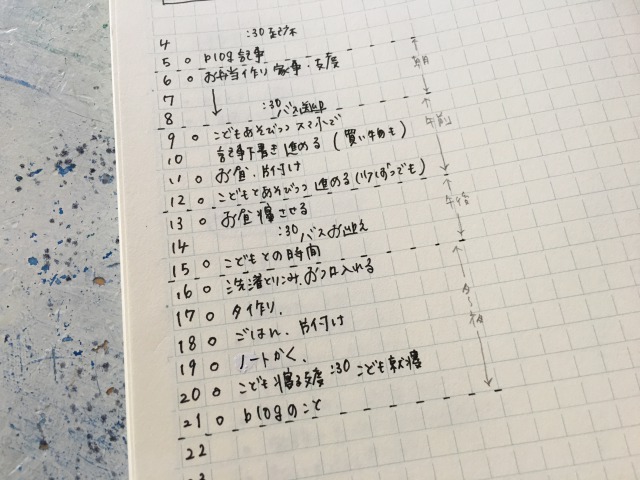 4 :30 起床
5 ○ blog記事
6 ○ お弁当作り 家事・支度
7
8 :30 バス送迎
9 ○ こどもあそびつつ スマホで
10 記事下書き進める (買い物も)
11 ○ お昼・片付け
12 ○ こどもとあそびつつ 進める (少しずつでも)
13 ○ お昼寝させる
14 :30 バスお迎え
15 ○ こどもとの時間
16 ○ 洗濯とりこみ、おフロ入れる
17 ○ 夕作り、
18 ○ ごはん、片付け
19 ○ ノートかく、
20 ○ こども寝る支度 :30 こども就寝
21 ○ blogのこと
22
23
朝
午前
午後
夕〜夜